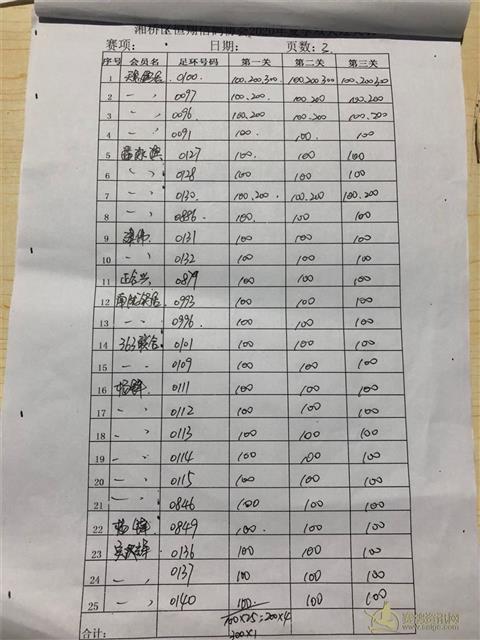 赛项： 日期： 页数：2
序号 会员名 足环号码 第一关 第二关 第三关
1 0100 100.200.300 100.200.300 100.200.300
2 一 、 0097 100.200 100.200 100.200
3 一 、 0096 100.200 100.200 100.200
4 一 、 0091 100 100 100
5 0127 100 100 100
6 、 、 0128 100 100 100
7 、 、 0130 100.200 100.200 100.200
8 一 、 0886 100 100 100
9 0131 100 100 100
10 一 、 0132 100 100 100
11 正合兴 0879 100 100 100
12 0993 100 100 100
13 一 、 0996 100 100 100
14 363联合 0101 100 100 100
15 一 、 0109 100 100 100
16 杨锋 0111 100 100 100
17 一 、 0112 100 100 100
18 一 、 0113 100 100 100
19 一 、 0114 100 100 100
20 一 、 0115 100 100 100
21 一 、 0846 100 100 100
22 杨锋 0849 100 100 100
23 0136 100 100 100
24 一 、 0137 100 100 100
25 一 、 0140 100 100 100
合计： 100×25=200×4
300×1